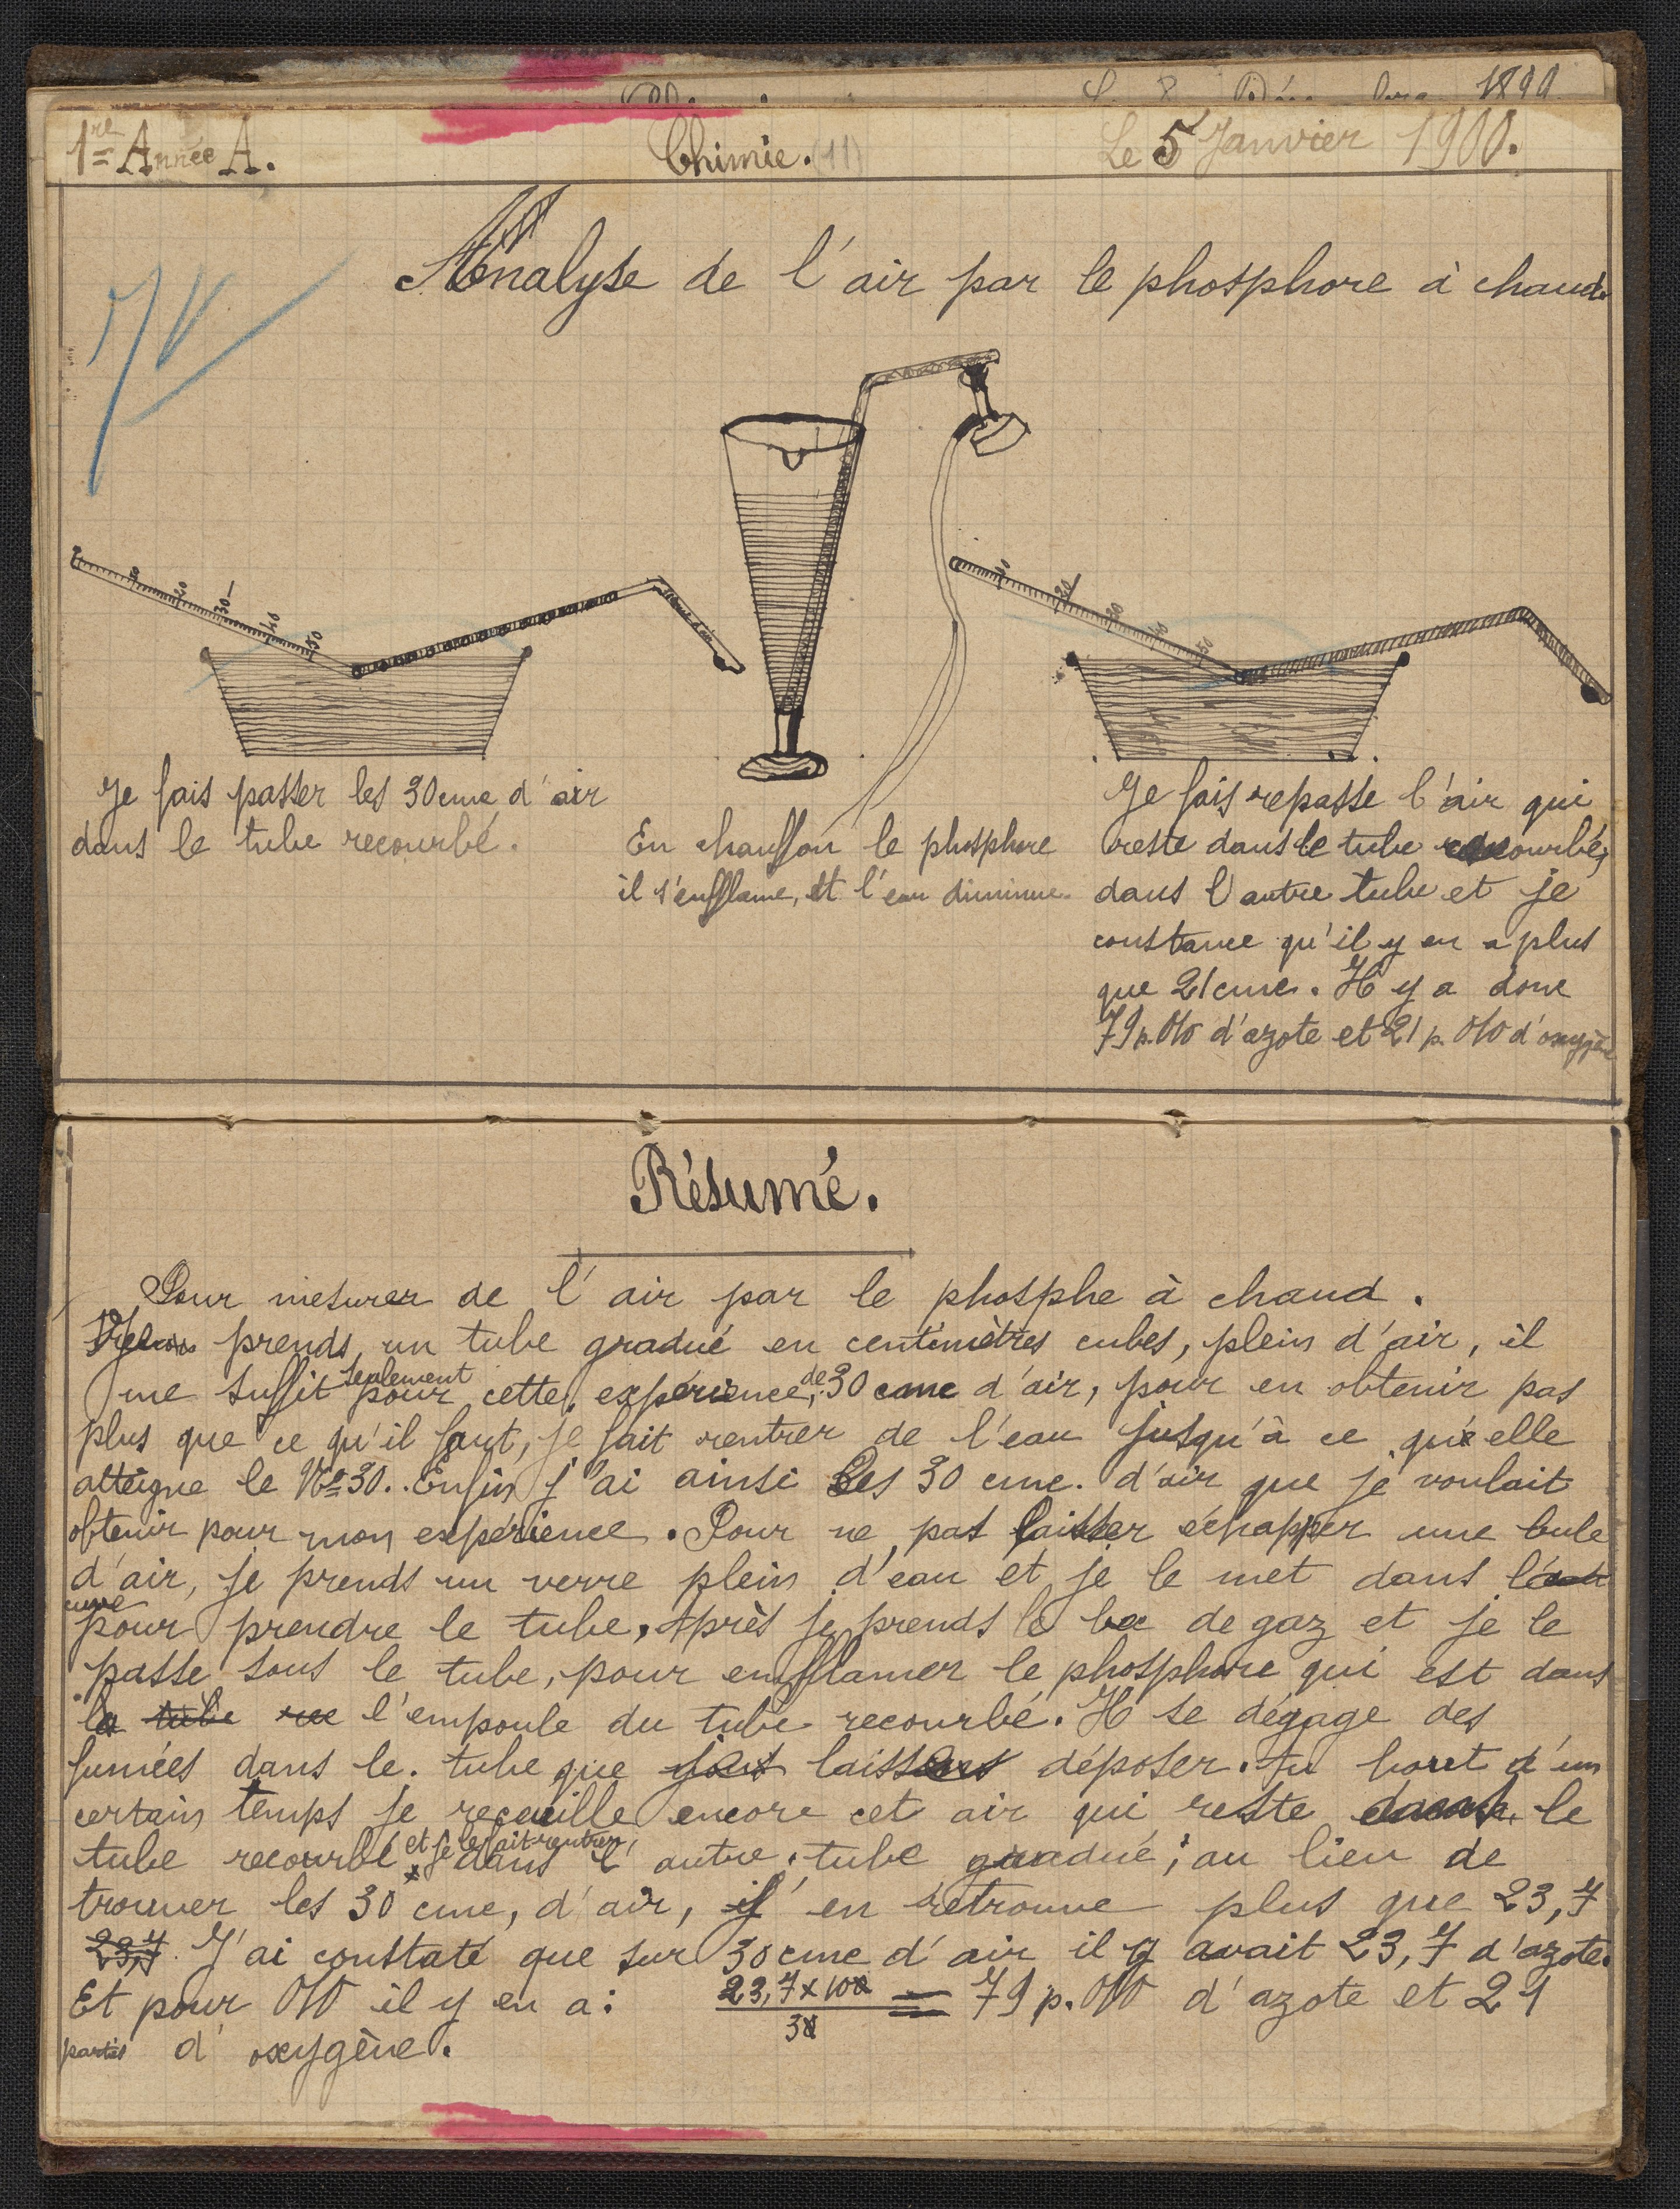 1899
1re Année A. Chimie. (11) Le 5 Janvier 1900.
Analyse de l'air par le phosphore à chaud.
10 20 30 40 50
10 20 30 40 50
Je fais passer les 30cmc d'air
dans le tube recourbé.
En chauffon le phosphore
il s'enfflame, et l'eau diminue.
Je fais repasse l'air qui
reste dans le tube recourbé,
dans l'autre tube et je
constance qu'il y en a plus
que 21cmc. Il y a donc
79 p. 0/0 d'azote et 21 p. 0/0 d'oxygène
Résumé.
Pour mesurer de l'air par le phosphe à chaud.
Je prends un tube gradué en centimètres cubes, plein d'air, il
me suffit seulement pour cette expérience, de 30 cmc d'air, pour en obtenir pas
plus que ce qu'il faut, je fait rentrer de l'eau jusqu'à ce qu'elle
atteigne le No 30. Enfin j'ai ainsi les 30 cmc. d'air que je voulait
obtenir pour mon expérience. Pour ne pas laisser échapper une bule
d'air, je prends un verre plein d'eau et je le met dans la
cuve pour prendre le tube. Après je prends le bec de gaz et je le
passe sous le tube, pour enfflamer le phosphore qui est dans
la tube l'empoule du tube recourbé. Il se dégage des
fumées dans le tube que laisse déposer. Au bout d'un
certain temps je recueille encore cet air qui reste dans le
tube recourbé et je le fait rentrer dans l'autre tube gradué; au lieu de
trouver les 30 cmc, d'air, j'en retrouve plus que 23,7
23,7 J'ai constaté que sur 30 cmc d'air il y avait 23,7 d'azote.
Et pour 0/0 il y en a: 23,7 x 100 / 30 = 79 p. 0/0 d'azote et 21
parties d'oxygène.